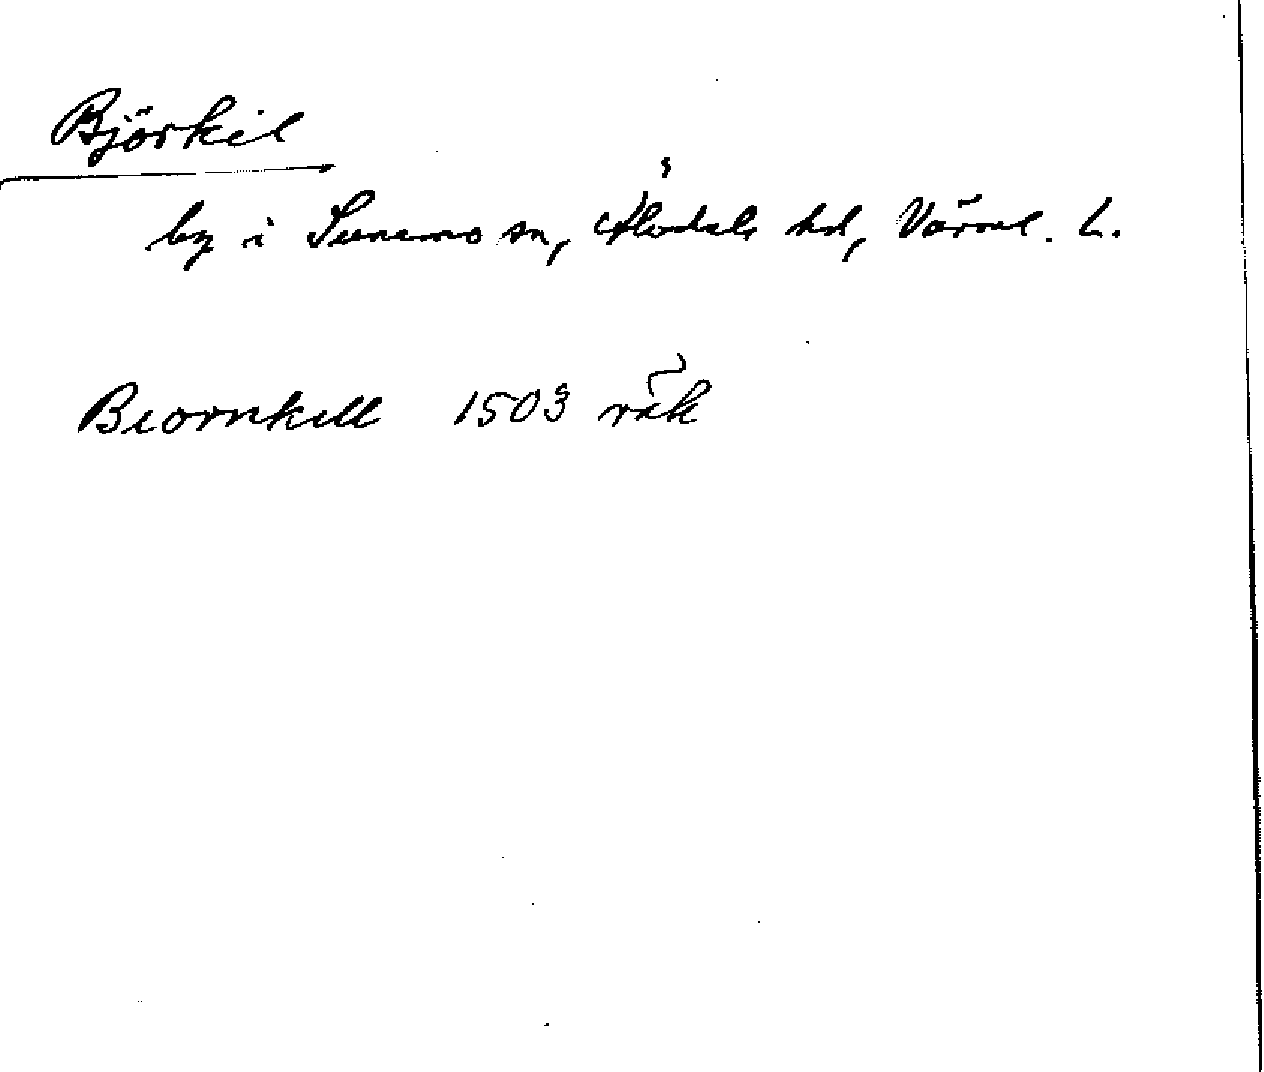 Björkil
by i Sunemo sn, Älvdals hd, Värml. L.
Biornkill 1503 räk